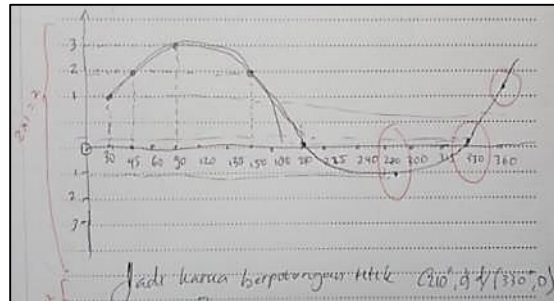 3
2
1
0 30 45 60 90 120 135 150 180 210 225 240 270 300 315 330 360
1
2
3
Jadi kurva berpotongan titik (210°, 0) d/ (330°, 0)